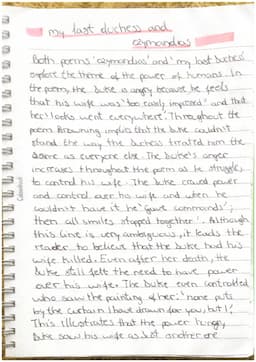 my last duchess and
ozymandias
Both poems 'ozymandias' and 'my last duchess'
explore the theme of the power of humans. In
the poem, the Duke is angry because he feels
that his wife was 'too easily impressed' and that
her 'looks went everywhere'. Throughout the
poem Browning implies that the Duke couldn't
stand the way the Duchess treated him the
same as everyone else. The Duke's anger
increases throughout the poem as he struggles
to control his wife. The Duke craved power
and control over his wife and when he
couldn't have it he 'gave commands',
then all smiles stopped together'. Although
this line is very ambiguous, it leads the
reader to believe that the Duke had his
wife killed. Even after her death, the
Duke still felt the need to have power
over his wife. The Duke even controlled
who saw the painting of her: 'none puts
by the curtain I have drawn for you, but I'.
This illustrates that the power hungry
Duke saw his wife as not another